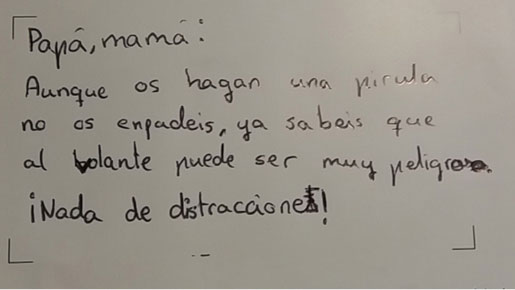 Papá, mamá:
Aunque os hagan una pirula
no os enpadeis, ya sabeis que
al volante puede ser muy peligroso.
¡Nada de distracciones!